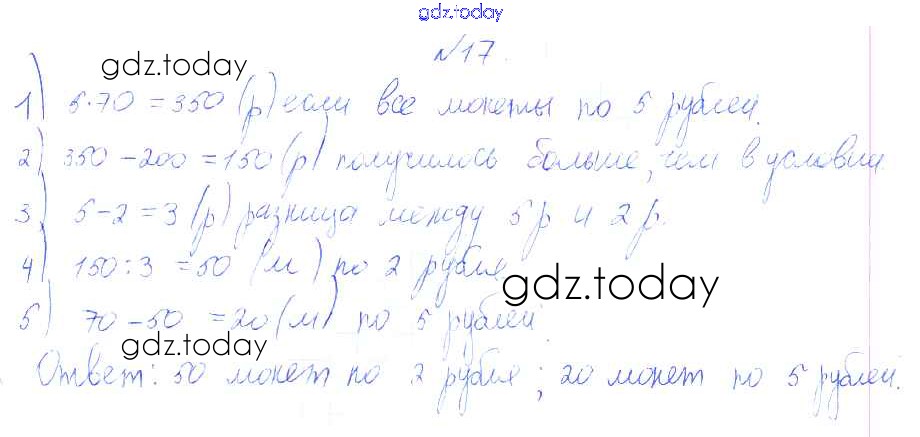 gdz.today
№17.
gdz.today
1) 5·70=350 (р) если все монеты по 5 рублей.
2) 350-200=150 (р) получилось больше, чем в условии
3) 5-2=3 (р) разница между 5р и 2р.
4) 150:3=50 (м) по 2 рубля
gdz.today
5) 70-50=20 (м) по 5 рублей.
gdz.today
Ответ: 50 монет по 2 рубля; 20 монет по 5 рублей.